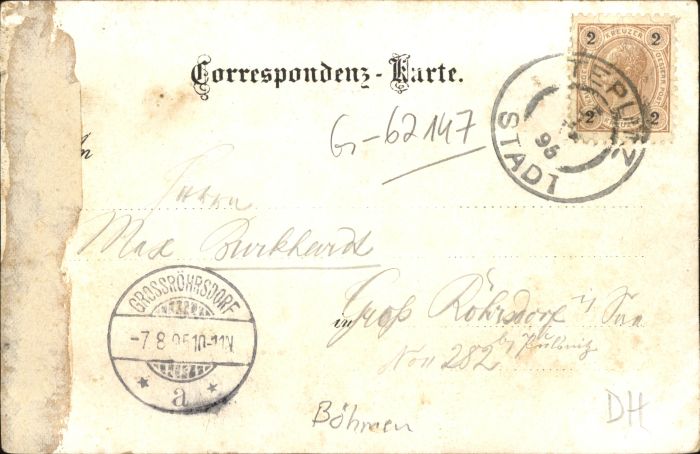 Correspondenz-Karte.
2 KREUZER 2
2 KREUZER 2
TEPLITZ
STADT
95
G-62147
An
Herrn
Max Burkhardt
in Groß Röhrsdorf i/ Sa
No 282 b/ Pulsnitz
GROSSRÖHRSDORF
-7.8.95 10-11N.
* a *
Böhmen
DH